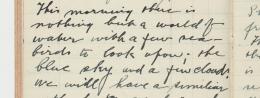 This morning there is
nothing but a world of
water with a few sea-
birds to look upon. the
blue sky and a few clouds
we will have a similar